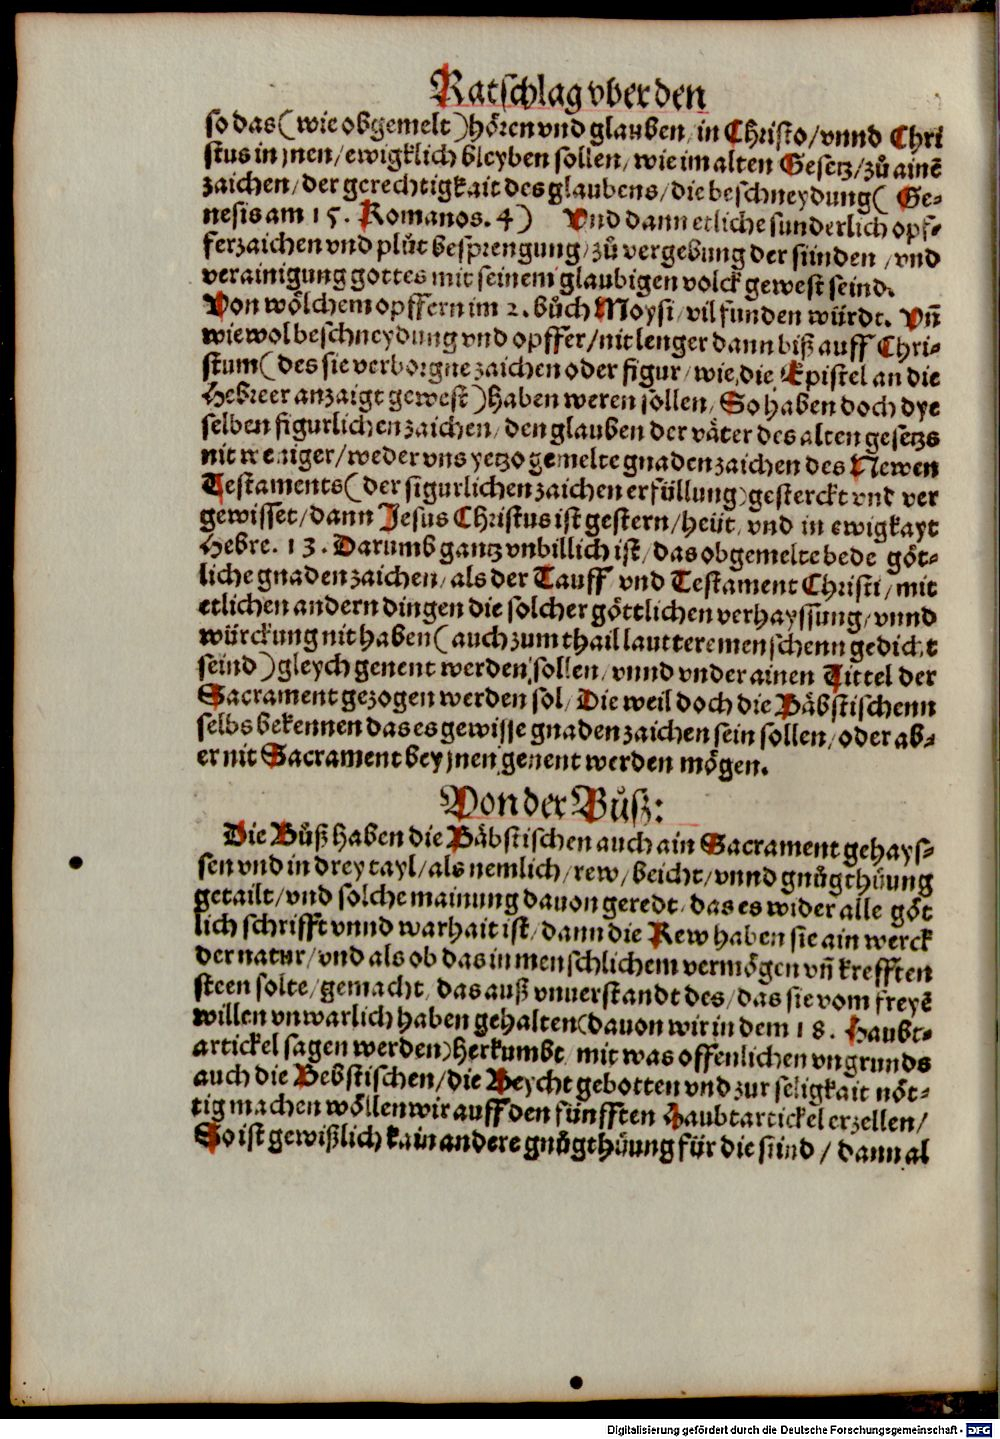 Ratschlag vber den
so das (wie obgemelt) hören vnd glauben / in Christo / vnnd Chri
stus in jnen / ewigklich bleyben sollen / wie im alten Gesetz / zů ainē
zaichen / der gerechtigkait des glaubens / die beschneydung ( Ge-
nesis am 15. Romanos. 4) Vnd dann etliche sunderlich opf-
ferzaichen vnd plůt besprengung / zů vergebung der sünden / vnd
verainigung gottes mit seinem glaubigen volck gewest seind.
Von wölchem opffern im 2. bůch Moysi / vil funden würdt. Vñ
wie wol beschneydung vnd opffer / nit lenger dann biß auff Chri-
stum ( des sie verborgne zaichen oder figur / wie die Epistel an die
Hebreer anzaigt gewest ) haben weren sollen / So haben doch dye
selben figurlichen zaichen / den glauben der väter des alten gesetzs
nit weniger / weder vns yetzo gemelte gnadenzaichen des Newen
Testaments ( der figurlichen zaichen erfüllung ) gesterckt vnd ver
gewisset / dann Jesus Christus ist gestern / heüt / vnd in ewigkayt
Hebre. 13. Darumb gantz vnbillich ist / das obgemelte bede göt-
liche gnadenzaichen / als der Tauff vnd Testament Christi / mit
etlichen andern dingen die solcher göttlichen verhayssung / vnnd
würckung nit haben ( auch zum thail lauttere menschenn gedicht
seind ) gleych genent werden sollen / vnnd vnder ainen Tittel der
Sacrament gezogen werden sol / Die weil doch die Päbstischenn
selbs bekennen das es gewisse gnadenzaichen sein sollen / oder ab-
er nit Sacrament bey jnen genent werden mögen.
Von der Bůß:
Die Bůß haben die Päbstischen auch ain Sacrament gehays-
sen vnd in drey tayl / als nemlich / rew / beicht / vnnd gnůgthüung
getailt / vnd solche mainung dauon geredt / das es wider alle göt
lich schrifft vnnd warhait ist / dann die Rew haben sie ain werck
der natur / vnd als ob das in menschlichem vermögen vñ krefften
steen solte / gemacht / das auß vnuerstandt des / das sie vom freyē
willen vnwarlich haben gehalten (dauon wir in dem 18. Haubt-
artickel sagen werden) herkumbt / mit was offenlichen vngrunds
auch die Bebstischen / die Beycht gebotten vnd zur seligkait nöt-
tig machen wöllen wir auff den fünfften Haubtartickel erzellen /
So ist gewißlich kain andere gnůgthüung für die sünd / dann al
Digitalisierung gefördert durch die Deutsche Forschungsgemeinschaft - DFG